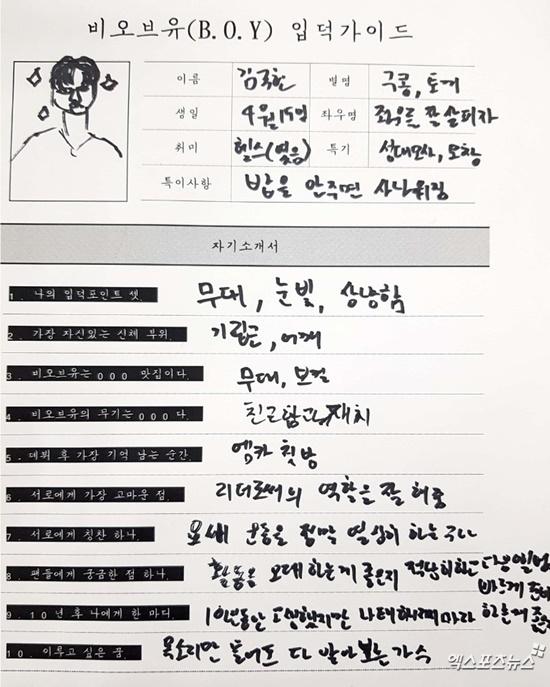 비오브유(B.O.Y) 입덕가이드
이름 김국헌 별명 구콩, 토끼
생일 4월 15일 좌우명 좌우를 잘 살피자
취미 헬스(맞음) 특기 성대모사, 모창
특이사항 밥을 안주면 사나워짐
자기소개서
1. 나의 입덕포인트 셋. 무대, 눈빛, 상냥함
2. 가장 자신있는 신체 부위. 기립근, 어깨
3. 비오브유는 ooo 맛집이다. 무대, 보컬
4. 비오브유의 무기는 ooo다. 친근함과 재치
5. 데뷔 후 가장 기억 남는 순간. 엠카 첫방
6. 서로에게 가장 고마운 점. 리더로써의 역할을 잘 해줌
7. 서로에게 칭찬 하나. 요새 운동을 정말 열심히 하는구나
8. 팬들에게 궁금한 점 하나. 활동을 오래 하는게 좋은지 적당히하고 다음앨범
바르게
9. 10년 후 나에게 한 마디. 10년동안 고생했지만 나태해지지마라 하는게 좋은지
10. 이루고 싶은 꿈. 목소리만 들어도 다 알아보는 가수
엑스포츠뉴스